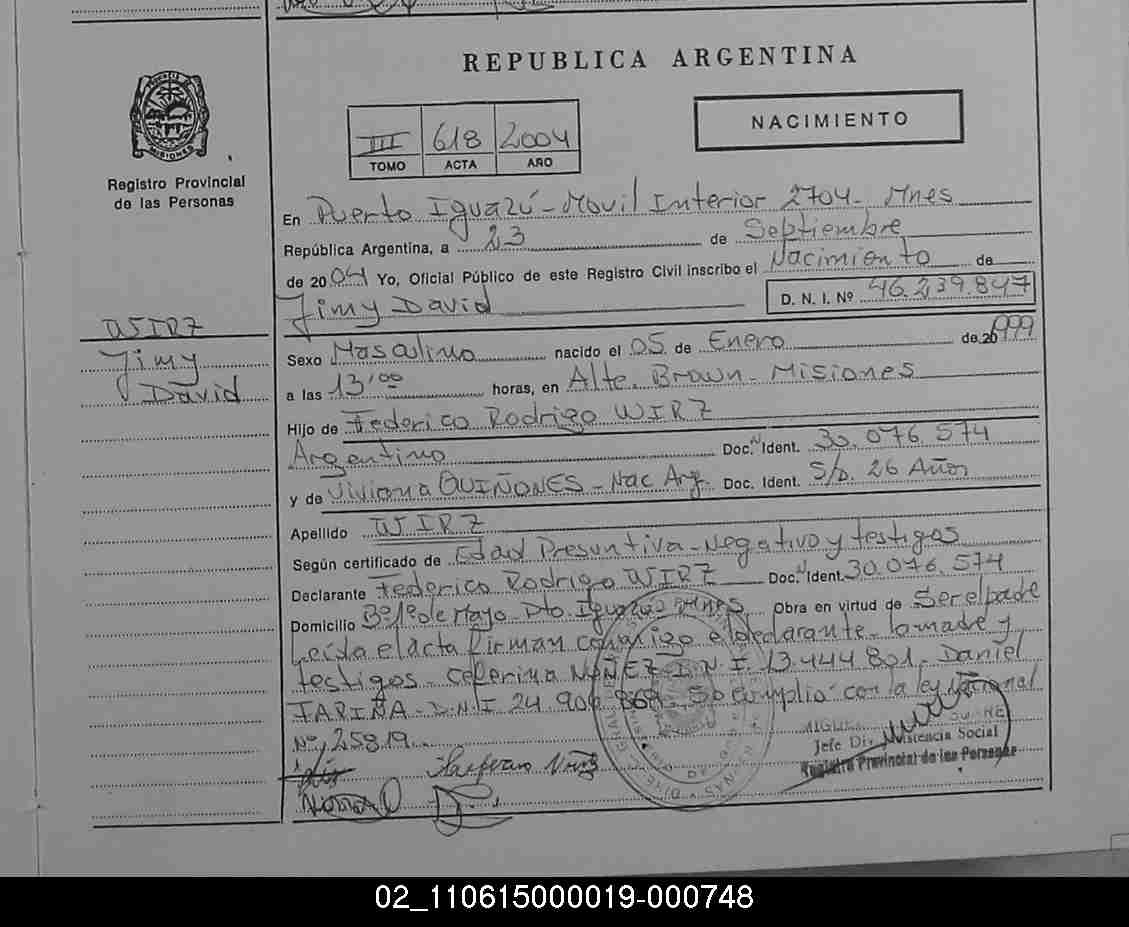 REPUBLICA ARGENTINA
NACIMIENTO
III 618 2004
TOMO ACTA AÑO
MISIONES
Registro Provincial
de las Personas
En Puerto Iguazú - Movil Interior 2704 - Mnes
República Argentina, a 23 de Septiembre
de 2004 Yo, Oficial Público de este Registro Civil inscribo el Nacimiento de
Jimy David D. N. I. Nº 46.239.847
WIRZ
Jimy
David
Sexo Masculino nacido el 05 de Enero de 1999
a las 13'00 horas, en Alte. Brown - Misiones
Hijo de Federico Rodrigo WIRZ
Argentino Doc. N Ident. 30.076.574
y de Viviana QUIÑONES - Nac Arg. Doc. Ident. S/D. 26 Años
Apellido WIRZ
Según certificado de Edad Presuntiva - Negativo y testigos
Declarante Federico Rodrigo WIRZ Doc. N Ident. 30.076.574
Domicilio Bº 1º de Mayo - Dto. Iguazú Mnes Obra en virtud de Ser el padre
Leida el acta firman conmigo el declarante - la madre y
testigos - Ceferina NUÑEZ D.N.I. 13.444.801, Daniel
FARIÑA - D.N.I 24.900.869 - Se cumplio con la ley Nacional
Nº, 25819.
Jefe Div. Asistencia Social
Registro Provincial de las Personas
02_110615000019-000748